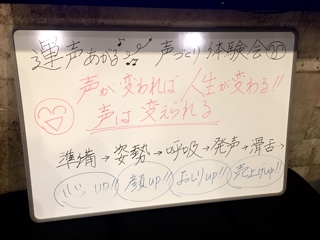 運声あがる♪ 声づくり体験会
声が変われば人生が変わる!!
声は変えられる
準備→姿勢→呼吸→発声→滑舌→
心up!! 顔up!! おしりup!! 売上げup!!